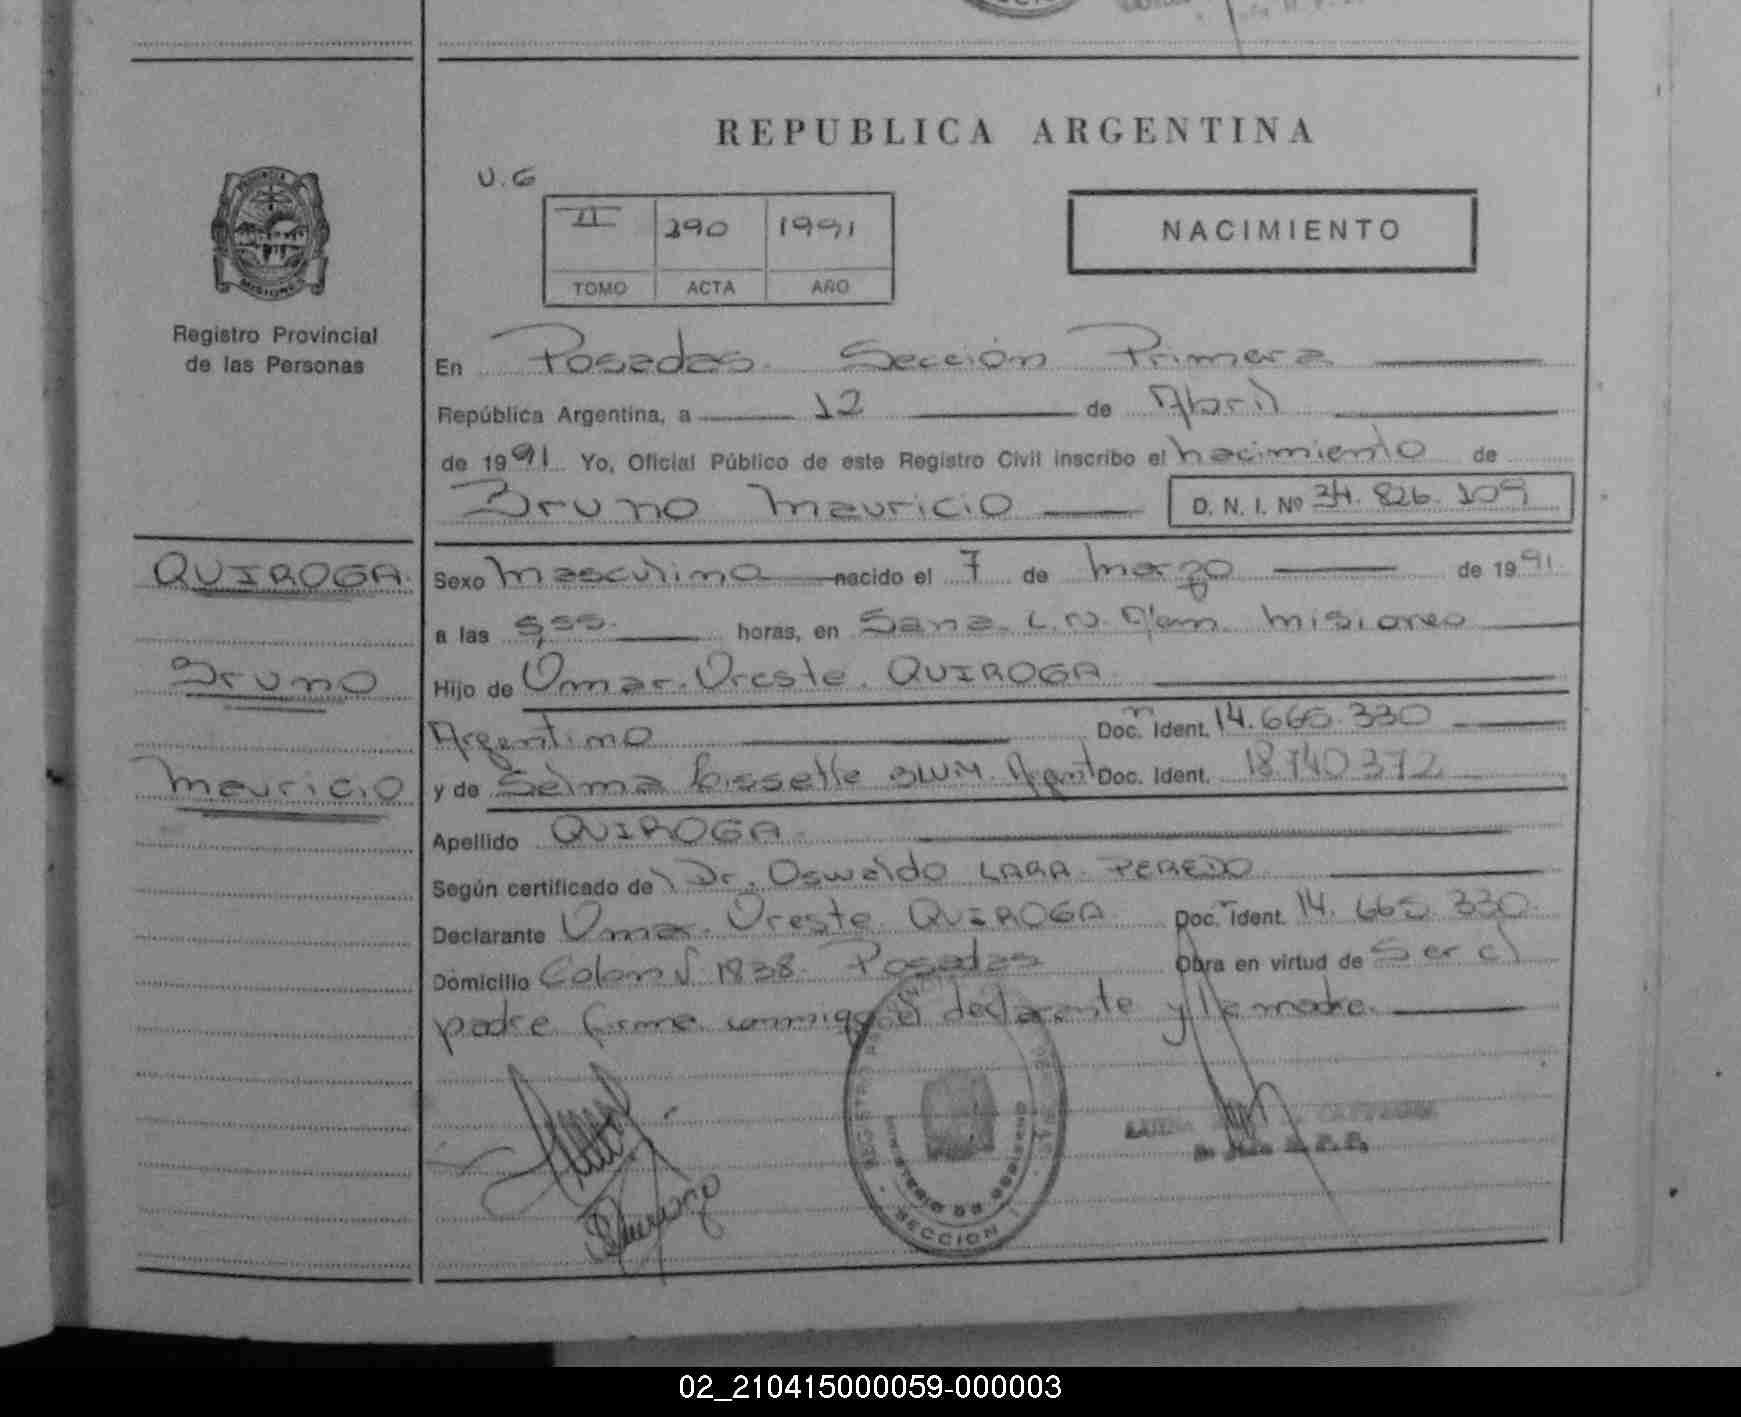 REPUBLICA ARGENTINA
U.G
II 290 1991
TOMO ACTA AÑO
NACIMIENTO
MISIONES
Registro Provincial
de las Personas
En Posadas. Sección Primera
República Argentina, a 12 de Abril
de 1991 Yo, Oficial Público de este Registro Civil inscribo el nacimiento de
Bruno Mauricio D. N. I. Nº 34.826.109
QUIROGA.
Sexo Masculino nacido el 7 de Marzo de 1991
a las horas, en Misiones
Bruno
Hijo de Omar Oreste QUIROGA
Argentino Doc. Ident. 14.665.330
Mauricio
y de Selma Lissette BLUM Doc. Ident. 18740372
Apellido QUIROGA
Según certificado de Dr. Oswaldo LARA PEREDO
Declarante Omar Oreste QUIROGA Doc. Ident. 14.665.330
Domicilio Colon 1838. Posadas Obra en virtud de Ser el
padre firma conmigo el declarante y la madre.
MINISTERIO DE GOBIERNO
SECCION
02_210415000059-000003